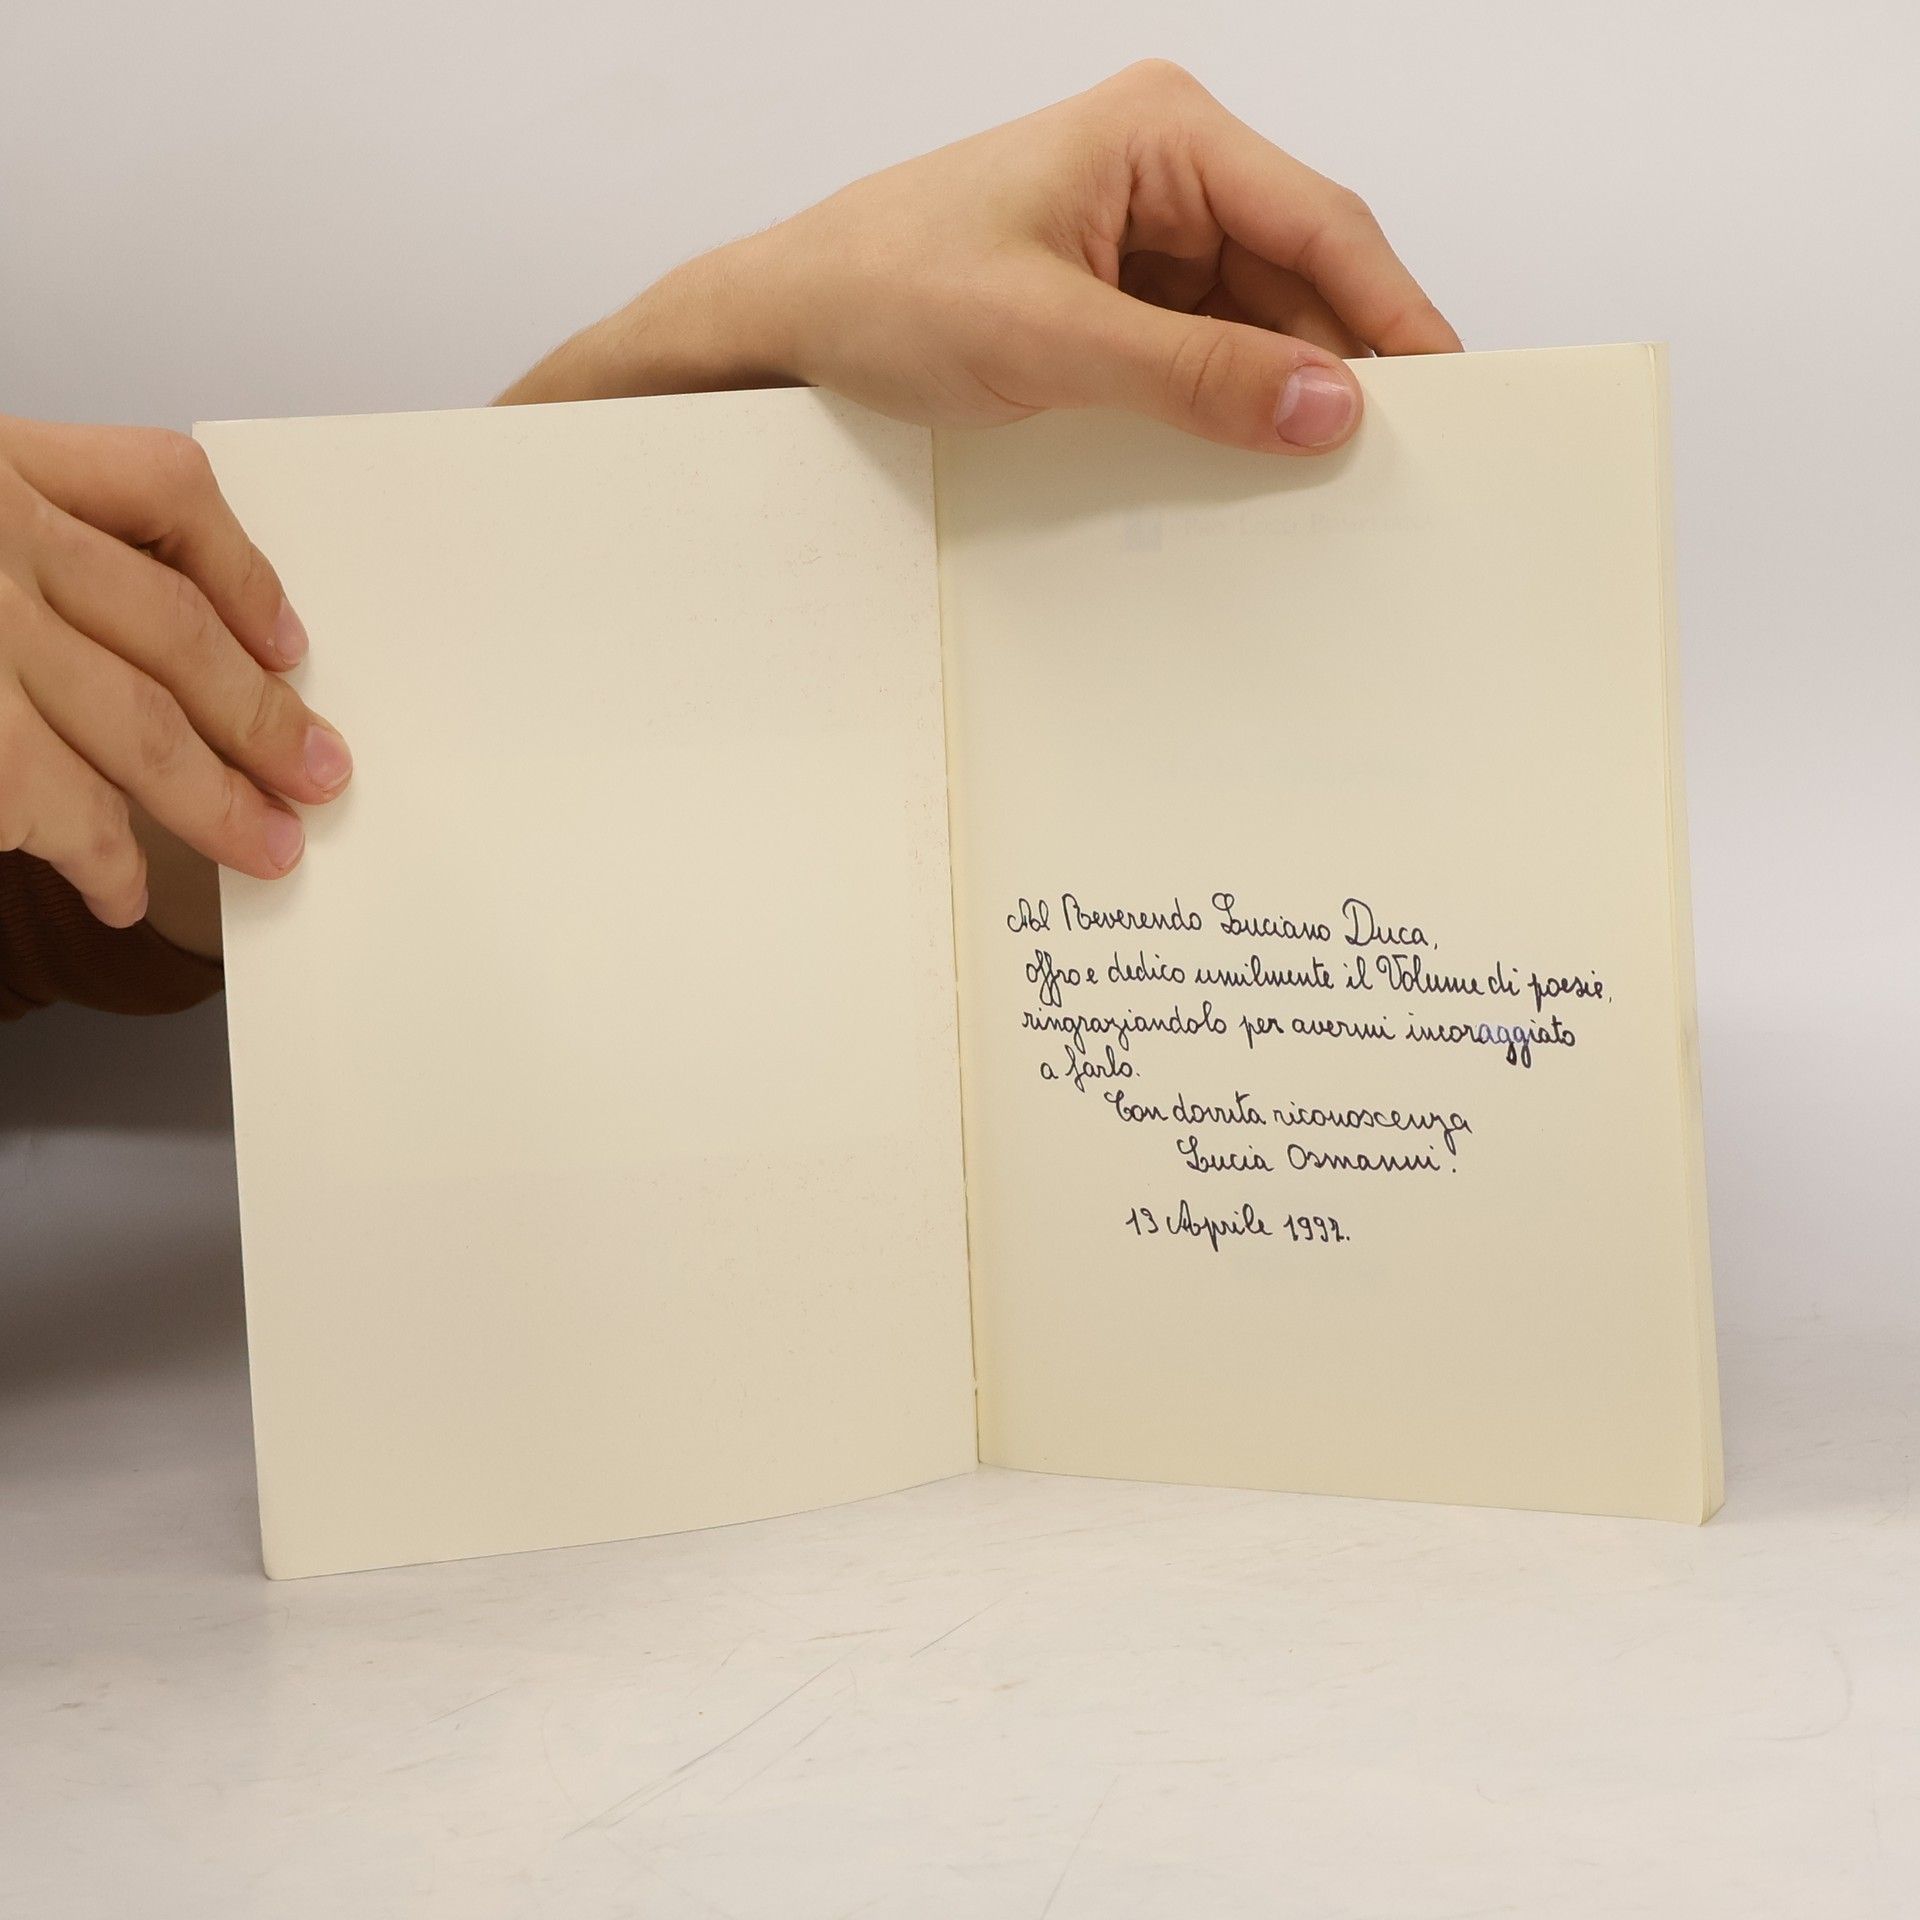 Al Reverendo Luciano Duca,
offro e dedico umilmente il Volume di poesie,
ringraziandolo per avermi incoraggiato
a farlo.
Con dovuta riconoscenza
Lucia Osmanni.
13 Aprile 1992.